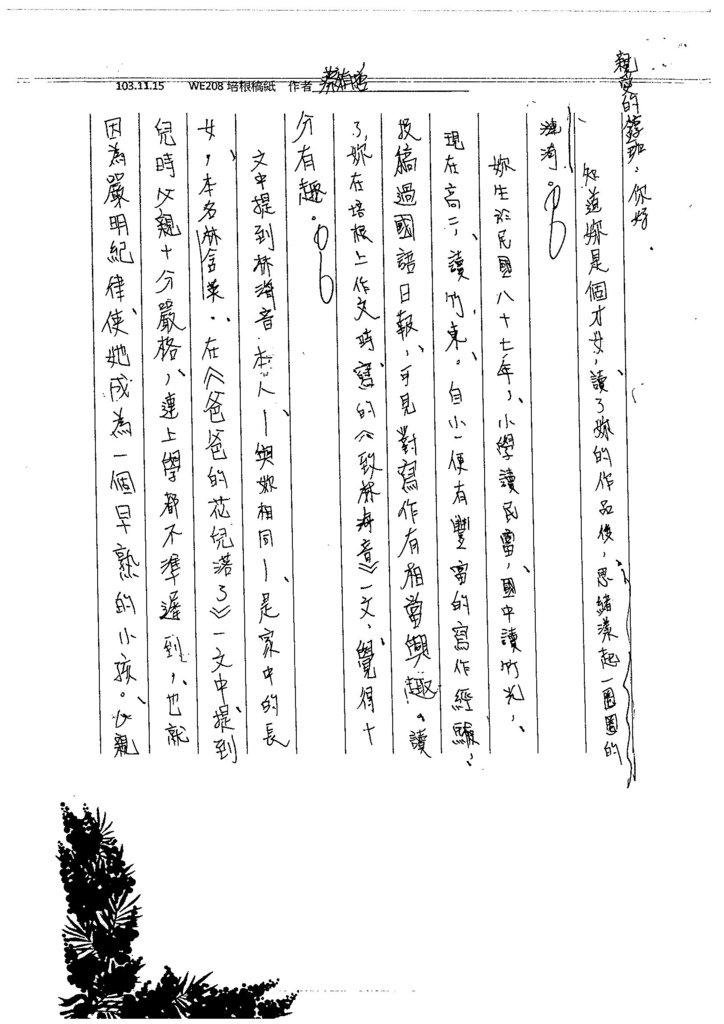 103.11.15 WE208 培根稿紙 作者
親愛的 ，你好．
知道妳是個才女，讀了妳的作品後，思緒漾起一圈圈的
漣漪。
妳生於民國八十七年，小學讀民富，國中讀竹光，
現在高二，讀竹東。自小便有豐富的寫作經驗，
投稿過國語日報，可見對寫作有相當興趣。讀
了妳在培根上作文時寫的《致林海音》一文，覺得十
分有趣。
文中提到林海音本人—與妳相同—是家中的長
女，本名林含英．在《爸爸的花兒落了》一文中提到
兒時父親十分嚴格，連上學都不準遲到，也就
因為嚴明紀律，使她成為一個早熟的小孩。父親